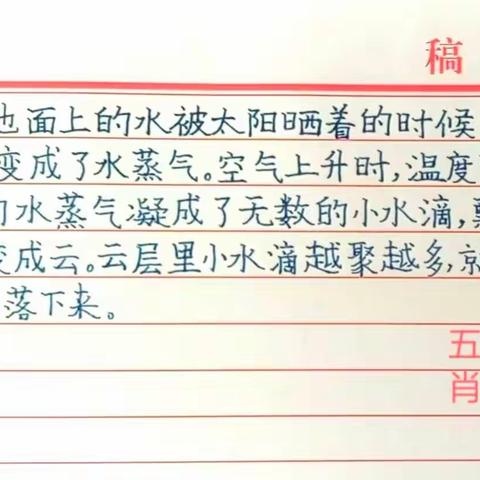 稿
地面上的水被太阳晒着的时候
变成了水蒸气。空气上升时,温度
水蒸气凝成了无数的小水滴,
变成云。云层里小水滴越聚越多,就
落下来。
五
肖